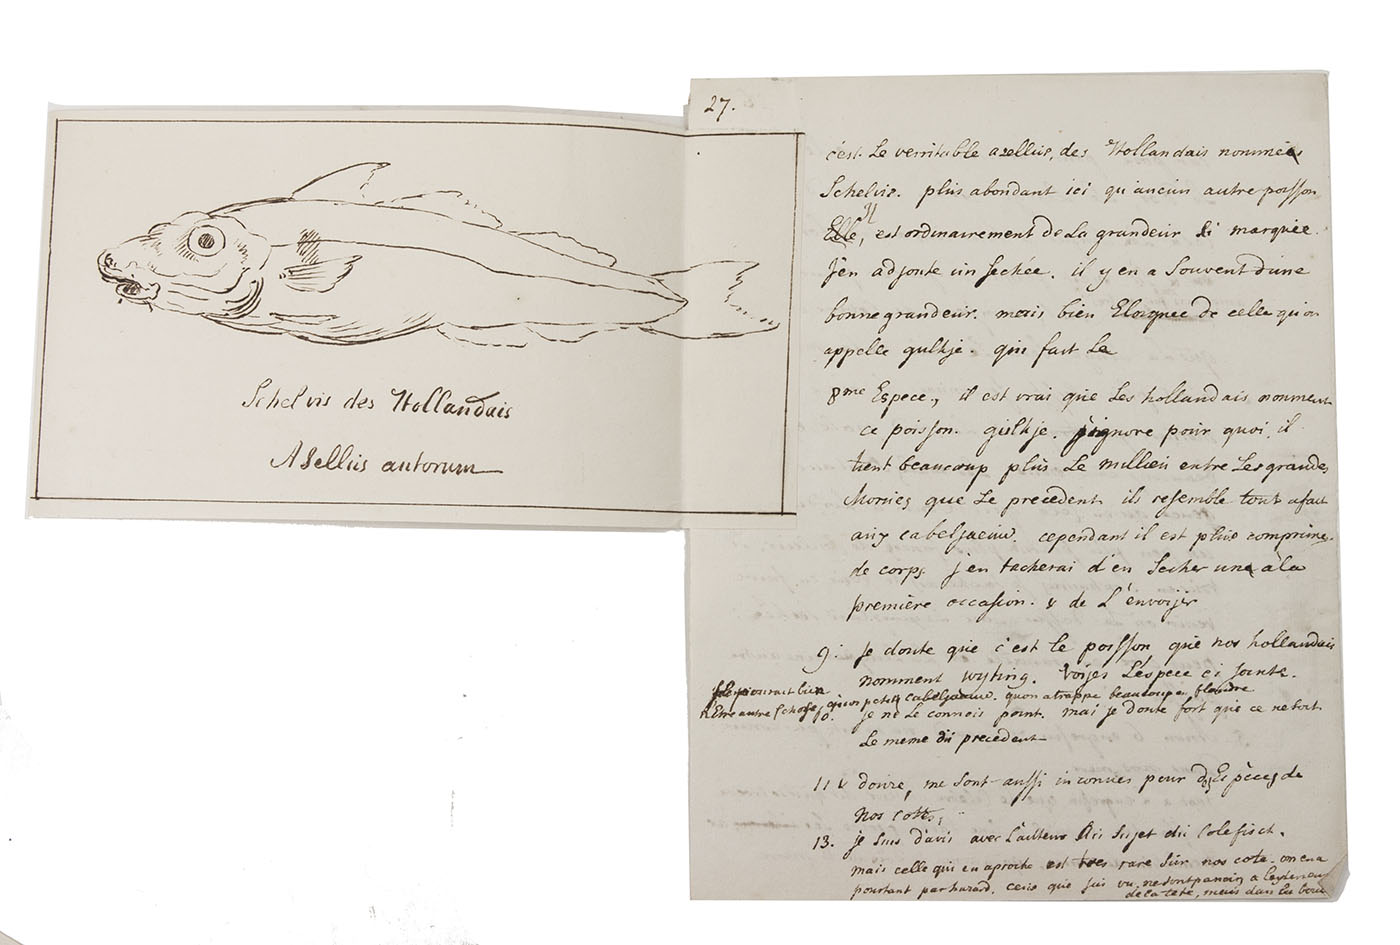 Schelvis des Hollandais
Asellus autorum
27.
c'est Le verritable asellus, des Hollandais nommées
Schelvis. plus abondant ici qu'aucun autre poisson
Elle, il est ordinairement de La grandeur si marquée.
j'en adjoute un sechée. il y en a souvent d'une
bonne grandeur. mais bien Eloignee de celle qu'on
appelle gulkje. qui fait Le
8me Espece., il est vrai que Les hollandais nomment
ce poisson. gulkje. j'ignore pour quoi, il
tient beaucoup plus Le millieu entre Les grandes
Morues que Le precedent ils resemble tout afait
aux cabeljaeuw. cependant il est plus comprimé
de corps j'en tacherai d'en secher une à la
première occasion. & de L'envoijer
9. je doute que c'est le poisson que nos hollandais
nomment wyting. voijes L'éspece ci jointe.
pourait bien
Etre autre chose, qu'un petit cabeljaeuw. qu'on atrappe beaucoup en flandre
10. je ne Le connois point. mai je doute fort que ce ne soit
Le meme du precedent
11 & douze, me sont aussi inconues pour des Espèces de
nos cottes,
13. je suis d'avis avec L'auteur au sujet du Colefisch.
mais celle qui en aproche est tres rare sur nos cote. on en a
pourtant par hazard. ceux que jai vu, ne sont pas noir a
de la tete, mais dans la